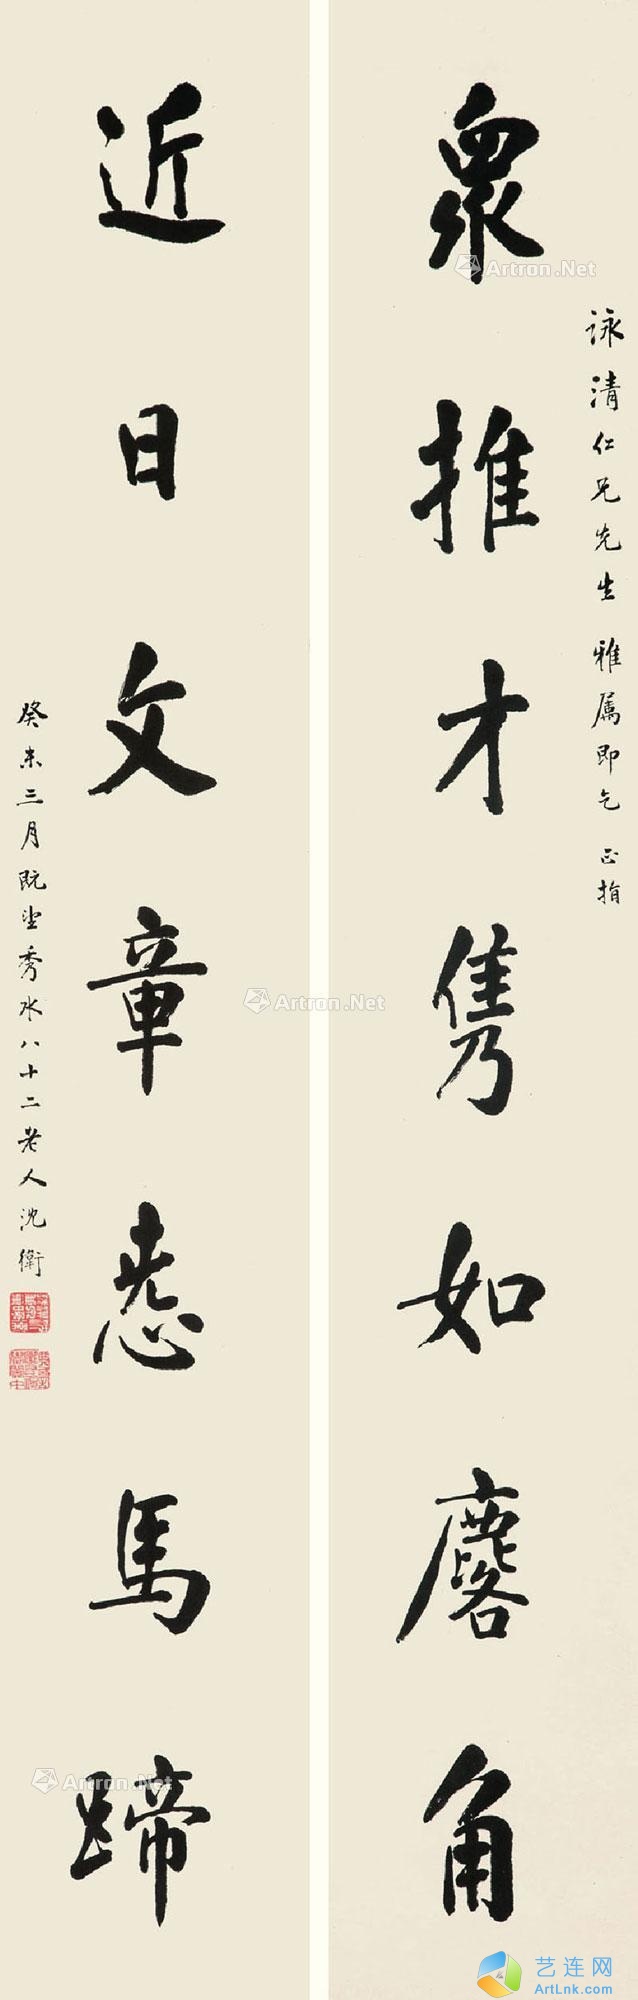 詠清仁兄先生雅属即乞正指
眾推才雋如麐角
近日文章悉馬蹄
癸未三月既望秀水八十二老人沈衛
Artron.Net
Artron.Net
Artron.Net
艺连网
ArtLnk.com